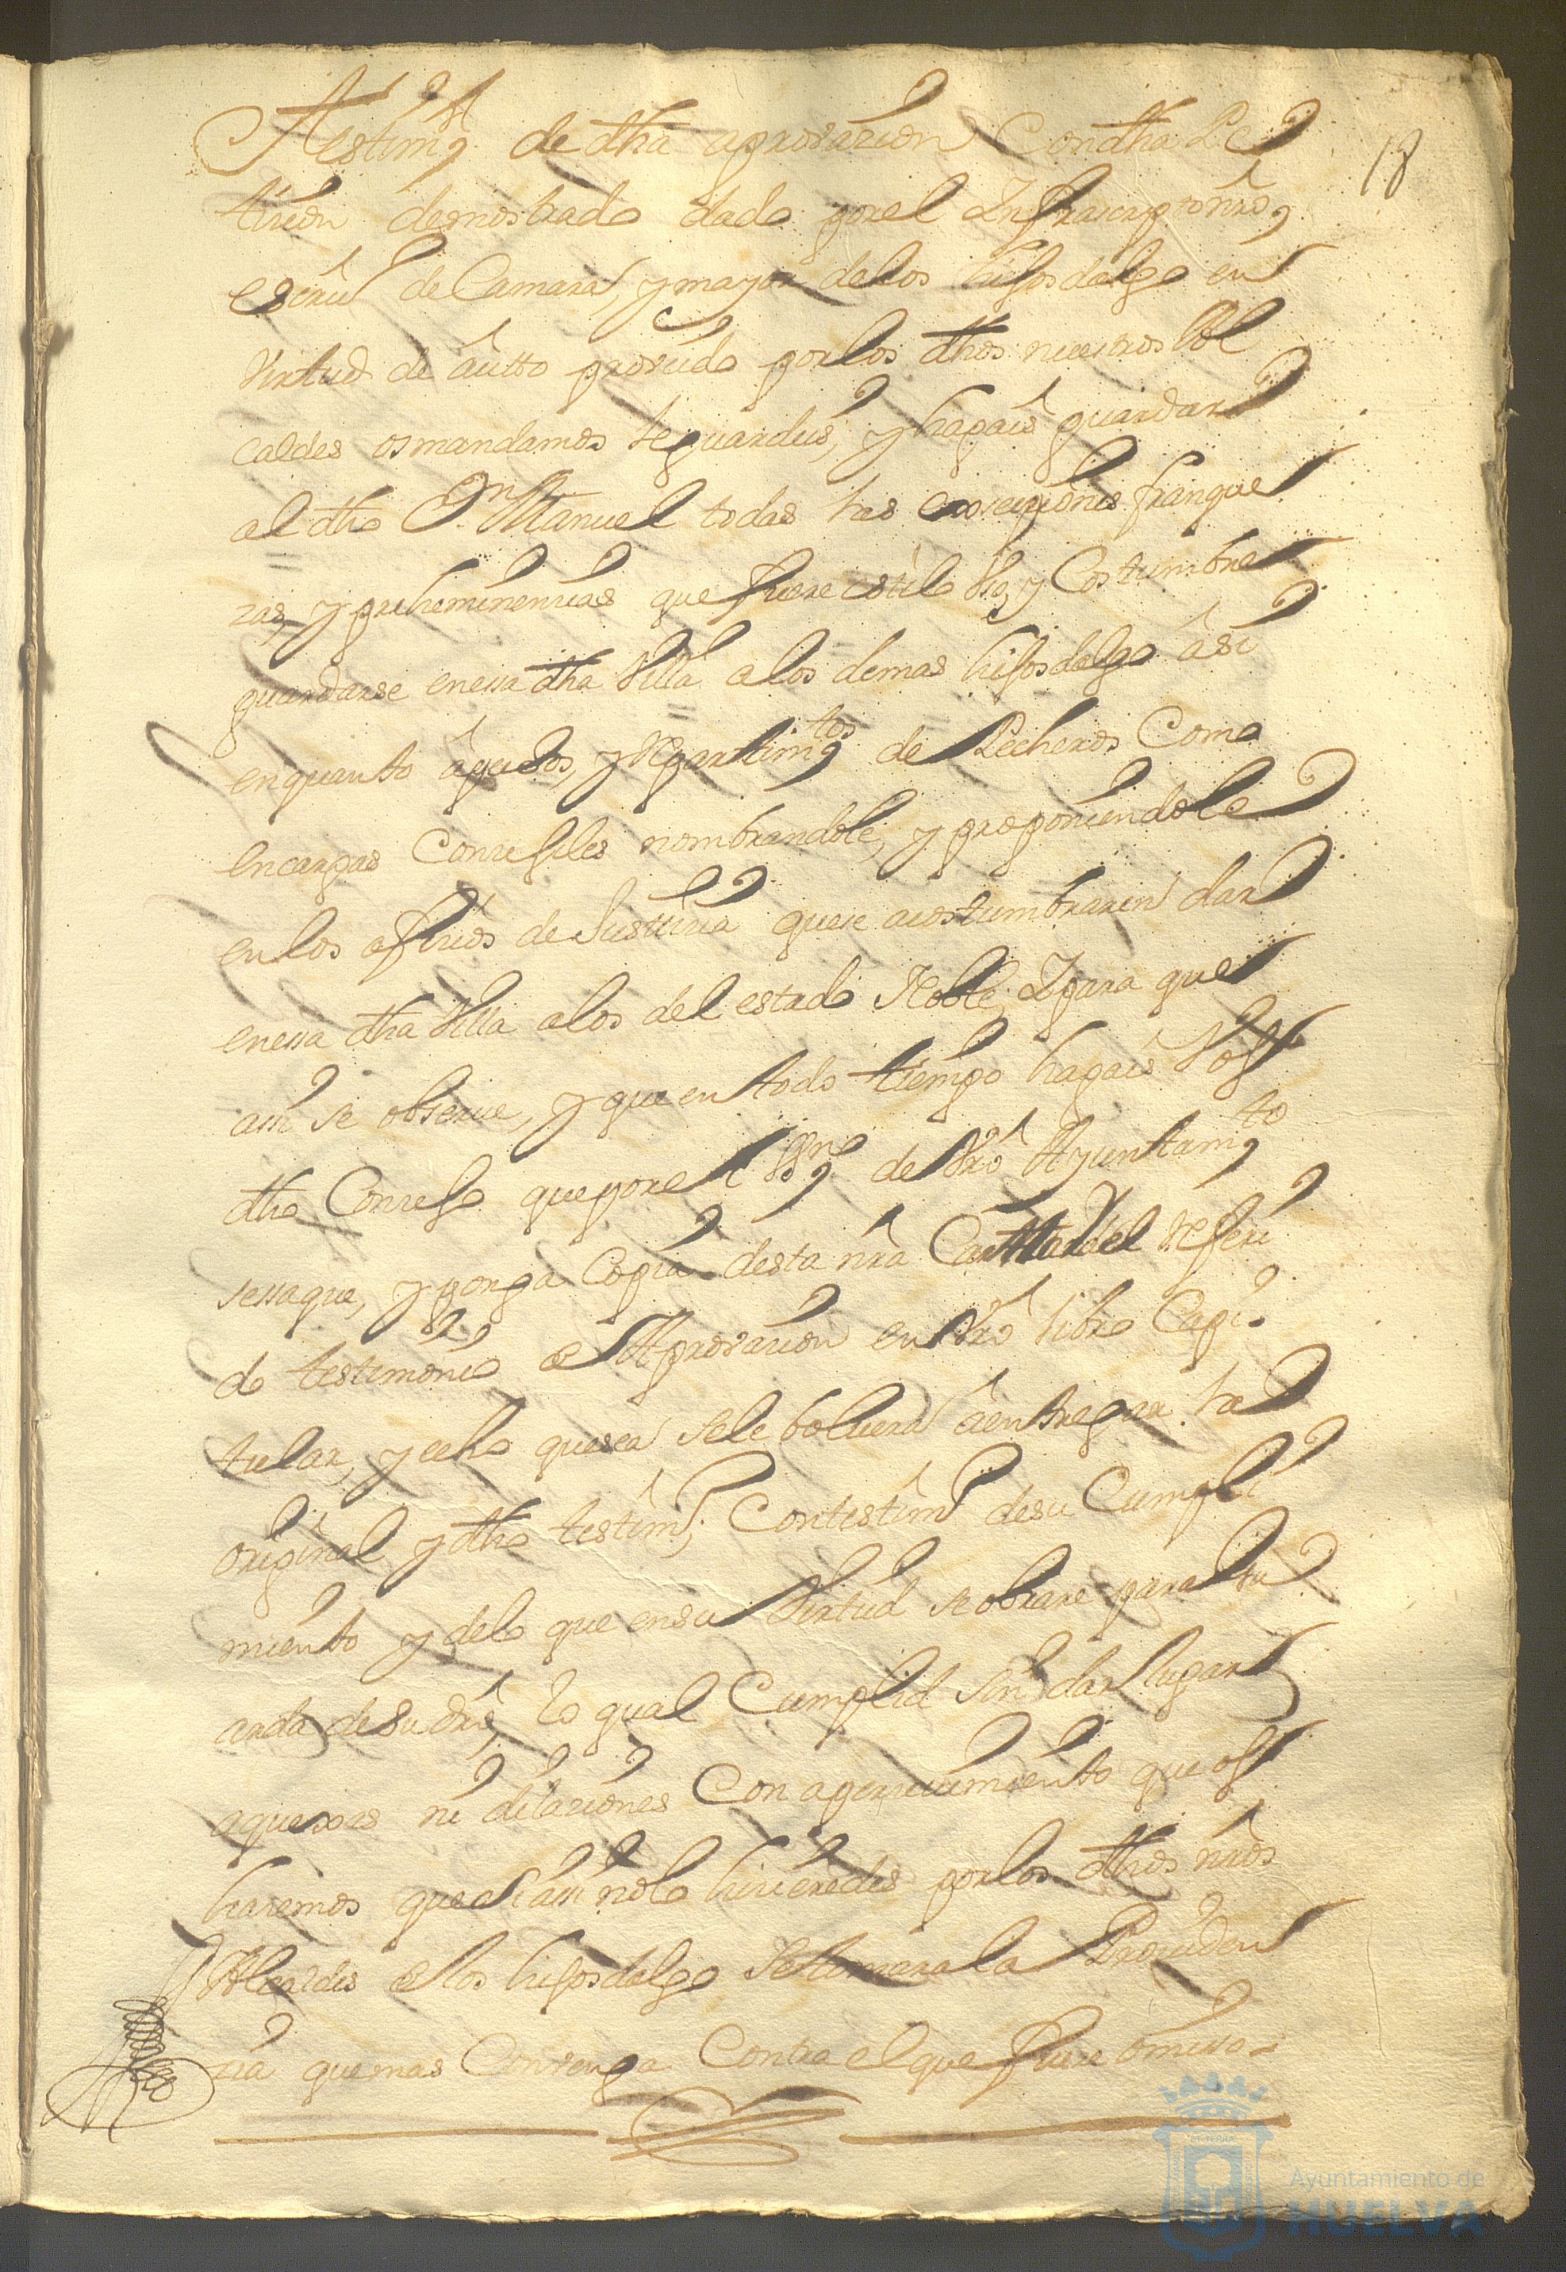 18
Testim.º de dha aprovazion Con dha Pe
tizion demostrado dado por el Infrascripto nrô
escriû de Camara, y mayor de los hijosdalgo en
virtud de âutto proveido por los dhôs nuestros Al
caldes os mandamos le guardeis, y hagais guardar
al dho Dn Manuel todas las exsempziones franque
zas, y preheminenzias que fuere estilo Vso, y Costumbre
guardarse en essa dha Villa a los demas hijosdalgo âsi
en quanto âpechos, y Repartim.tos de Pecheros Como
en cargas Consejiles nombrandole, y proponiendole
en los ofizios de Justizia que se acostumbraren dar
en essa dha Villa a los del estado Noble, Y para que
assi se observe, y que en todo tiempo hagais Vos
dho Conzejo que por el Ssno de Vrô Ayuntam.to
se saque, y ponga Copia desta nrâ Cartta del referi
do testimonio de Aprovazion en Vrô libro Capi
tular, y echo que sea se le bolvera â entregar la
original y dho testim.º, Con testim.º de su Cumpli
miento y de lo que en su Virtud se obrare para gu
arda de su drô, lo qual Cumplid sin dar lugar
a quexas ni dilaziones Con aperzivimiento que os
haremos que si assi no lo hizieredes por los dhôs nrôs
Alcaldes de los hijosdalgo se tomara la Providen
zia que mas Convenga Contra el que fuere omisso
Ayuntamiento de
HUELVA